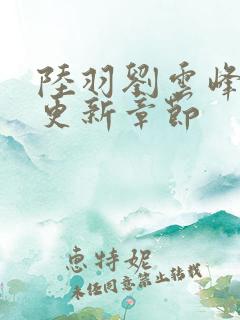 陸羽劉雲峰
更新章節
惠特妮
未經同意禁止轉載